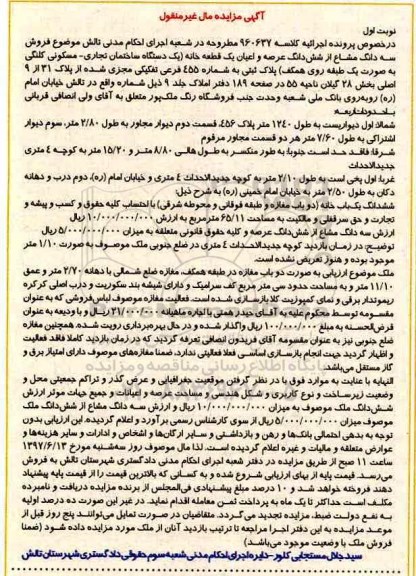 آگهی مزایده مال غیرمنقول
نوبت اول
درخصوص پرونده اجرائیه کلاسه ۹۶۰۶۳۷ مطروحه در شعبه اجرای احکام مدنی تالش موضوع فروش
سه دانگ مشاع از شش‌دانگ عرصه و اعیان یک قطعه خانه (یک دستگاه ساختمان تجاری- مسکونی کلنگی
به صورت یک طبقه روی همکف) پلاک ثبتی به شماره ۴۵۵ فرعی تفکیکی مجزی شده از پلاک ۳۱ از ۹
اصلی بخش ۲۸ گیلان ناحیه ۵۵ در صفحه ۱۸۹ دفتر املاک جلد ۹ ذیل شماره واقع در تالش خیابان امام
(ره) روبه‌روی بانک ملی شعبه وحدت جنب فروشگاه رنگ ملک‌پور متعلق به آقای ولی انصافی قربانی
با حدودات اربعه
شمالا: اول دیواریست به طول ۱۲۴۰ متر پلاک ۴۵۶، قسمت دوم دیوار مجاور به طول ۲/۸۰ متر، سوم دیوار
اشتراکی به طول ۷/۶۰ متر هر دو قسمت مجاور مرقوم
شرقا: فاقد حد است جنوبا: به طور منکسر به طول هائی ۸/۸۰ متر و ۱۵/۲۰ متر به کوچه ۴ متری
جدیدالاحداث
غربا: اول پخی است به طول ۲/۱۰ متر به کوچه جدیدالاحداث ۴ متری و خیابان امام (ره)، دوم درب و دهانه
دکان به طول ۲/۵۰ متر به خیابان امام خمینی (ره) به شرح ذیل:
ششدانگ یک‌باب خانه (دو باب مغازه و طبقه فوقانی و محوطه شرقی) با احتساب کلیه حقوق و کسب و پیشه و
تجارت و حق سرقفلی و مالکیت به مساحت ۶۵/۱۱ مترمربع به ارزش ۱۰/۰۰۰/۰۰۰/۰۰۰ ریال و
ارزش سه دانگ مشاع از شش‌دانگ عرصه و کلیه حقوق قانونی متعلقه به میزان ۵/۰۰۰/۰۰۰/۰۰۰ ریال
توضیح: در زمان بازدید کوچه جدیدالاحداث ۴ متری در ضلع جنوبی ملک موصوف به صورت ۱/۱۰ متر
موجود بوده و هنوز تعریض نشده است.
ملک موضوع ارزیابی به صورت دو باب مغازه در طبقه همکف، مغازه ضلع شمالی با دهانه ۲/۷۰ متر و عمق
۱۱/۱۰ متر و به مساحت حدود سی متر مربع کف سرامیک و دارای شیشه بند سکوریت و درب اصلی کرکره
ریموتدار برقی و نمای کمپوزیت کلا بازسازی شده است. فعالیت مغازه موصوف لباس‌فروشی که به عنوان
مقسومه توسط محکوم علیه به آقای حیدر همتی با اجاره ماهیانه ۲۱/۰۰۰/۰۰۰ ریال و با ودیعه به عنوان
قرض‌الحسنه به مبلغ ۱۰۰/۰۰۰/۰۰۰ ریال واگذار شده و در حال بهره‌برداری رویت شده. همچنین مغازه
ضلع جنوبی نیز به عنوان مقسومه آقای فریدون انصافی تعرفه گردید که در زمان بازدید کاملا فاقد فعالیت
و اظهار گردید جهت انجام بازسازی اساسی فعلا فعالیتی ندارد. ضمنا مغازه‌های موصوف دارای امتیاز برق و
گاز مستقل می‌باشد.
النهایه با عنایت به موارد فوق با در نظر گرفتن موقعیت جغرافیایی و عرض گذر و تراکم جمعیتی محل و
وضعیت زیرساخت و نوع کاربری و شکل هندسی و مساحت عرصه و اعیانات و جمیع جهات موثر ارزش
شش‌دانگ ملک موصوف به میزان ۱۰/۰۰۰/۰۰۰/۰۰۰ ریال و ارزش سه دانگ مشاع از شش‌دانگ ملک
موصوف میزان ۵/۰۰۰/۰۰۰/۰۰۰ ریال از سوی کارشناس رسمی برآورد و اعلام گردیده. این ارزیابی بدون
توجه به بدهی احتمالی بانک‌ها و رهن و بازداشتی و سایر ارگان‌ها و اشخاص و ادارات و سایر هزینه‌ها و
عوارض متعلقه و مالیات و غیره اعلام گردیده است. لذا مال موصوف روز سه‌شنبه مورخ ۱۳۹۷/۶/۱۳
ساعت ۱۱ صبح از طریق مزایده در دفتر شعبه اجرای احکام مدنی دادگستری شهرستان تالش به فروش
می‌رسد. قیمت پایه از بهای ارزیابی شروع شده و به کسانی که بالاترین قیمت را از قیمت پایه پیشنهاد
دهند فروخته خواهد شد و ۱۰ درصد مبلغ پیشنهادی فی‌المجلس از برنده مزایده دریافت و نامبرده
مکلف است حداکثر تا یک ماه به پرداخت ثمن معامله اقدام نماید. در غیر این صورت ده درصد اولیه
به نفع دولت ضبط، مزایده تجدید می‌گردد. متقاضیان در صورت تمایل می‌توانند پنج روز قبل از
موعد مزایده به این دفتر اجرا مراجعه تا ترتیب بازدید آنان از ملک مورد مزایده داده شود (ضمنا
فروش ملک با وضعیت موجود می‌باشد).
سید جلال مستجابی کلور - دایره اجرای احکام مدنی شعبه سوم حقوقی دادگستری شهرستان تالش